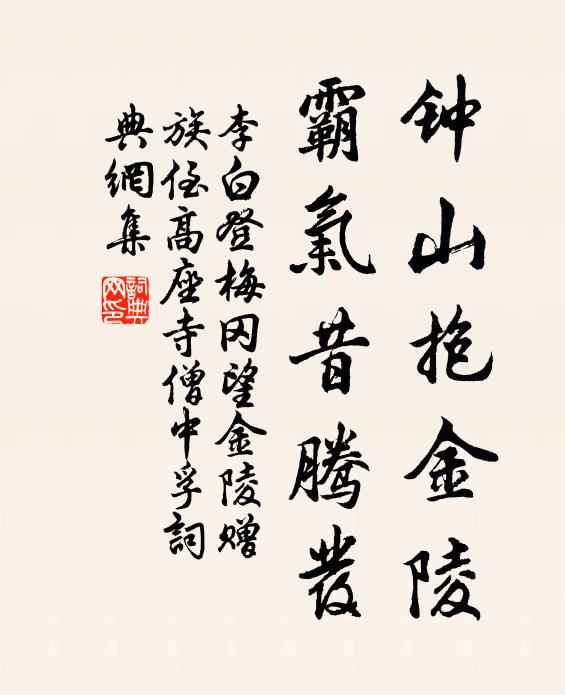 钟山抱金陵
霸氣昔騰發
李白登梅冈望金陵赠
族侄高座寺僧中孚詞
典網集
詞典
网印